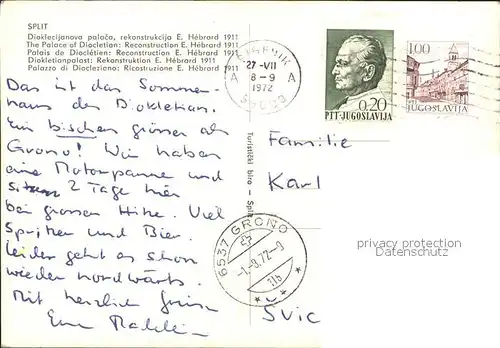 SPLIT
Dioklecijanova palača, rekonstrukcija E. Hébrard 1911
The Palace of Diocletian: Reconstruction E. Hébrard 1911
Palais de Dioclétien: Reconstruction E. Hébrard 1911
Diokletianpalast: Rekonstruktion E. Hébrard 1911
Palazzo di Diocleziano: Ricostruzione E. Hébrard 1911
Das ist das Sommer-
haus des Diokletian.
Ein bischen grösser als
Grono! Wir haben
eine Motorpanne und
sitzen 2 Tage hier
bei grosser Hitze. Viel
Spritzer und Bier.
Leider geht es schon
wieder nordwärts.
Mit herzlich Grüssen
Turistički biro - Split
27-VII
8-9
1972
A A
0.20
PTT-JUGOSLAVIJA
1.00
JUGOSLAVIJA
Familie
Karl
6537 GRONO
-1.-8.72-9
ŠVIC
privacy protection
Datenschutz